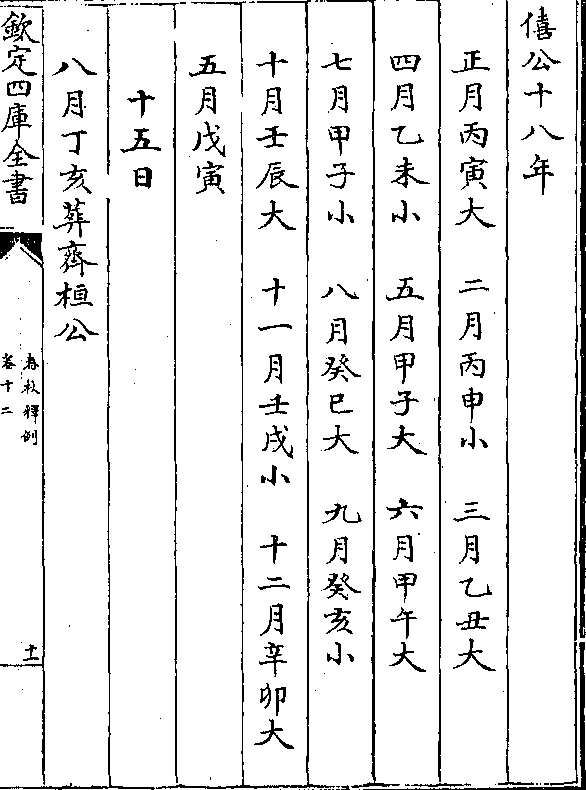 僖公十八年
正月丙寅大 二月丙申小 三月乙丑大
四月乙未小 五月甲子大 六月甲午大
七月甲子小 八月癸巳大 九月癸亥小
十月壬辰大 十一月壬戌小 十二月辛卯大
五月戊寅
十五日
八月丁亥葬齊桓公
欽定四庫全書
春秋釋例
卷十二
十一